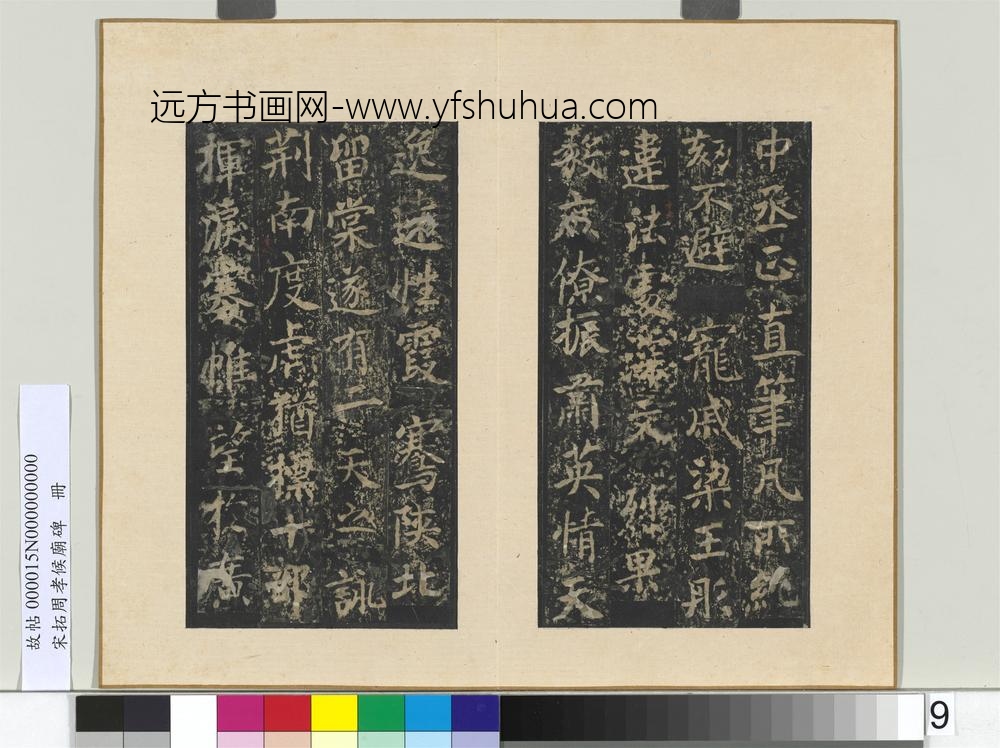 远方书画网-www.yfshuhua.com
中丞正直筆凡所糺
劾不避寵戚梁王肜
違法處深文案果
毅庶僚振肅英情天
逸遠性霞騫陝北
留棠遂有二天之詠
荆南度虎猶標十部
揮淚褰帷望於廣
故帖 000015N000000000
宋拓周孝候廟碑 冊
9